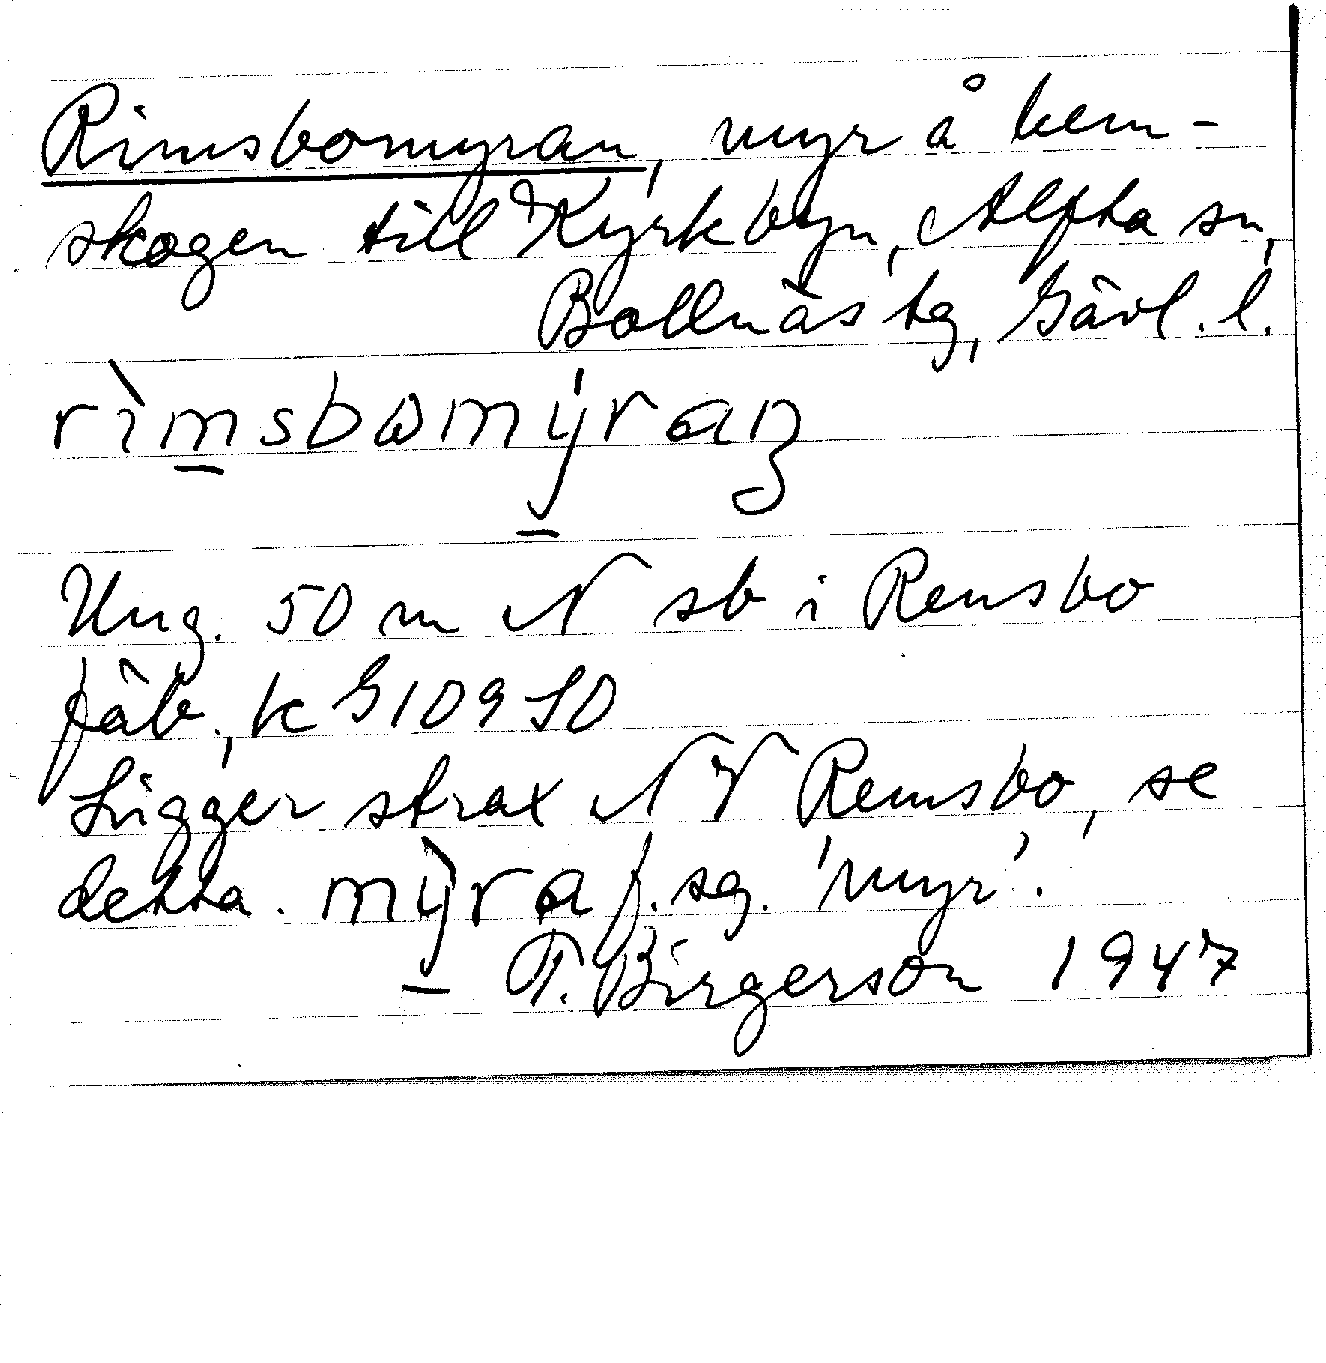 Rimsbomyran, myr å hem-
skogen till Kyrkbyn, Alfta sn,
Bollnäs tg, Gävl. l.
rìmsbωmýraɲ
Ung. 50 m N sb i Remsbo
fäb., k G 109 SO
Ligger strax NV Remsbo, se
detta. mỳra f. sg. 'myr'.
T. Birgerson 1947